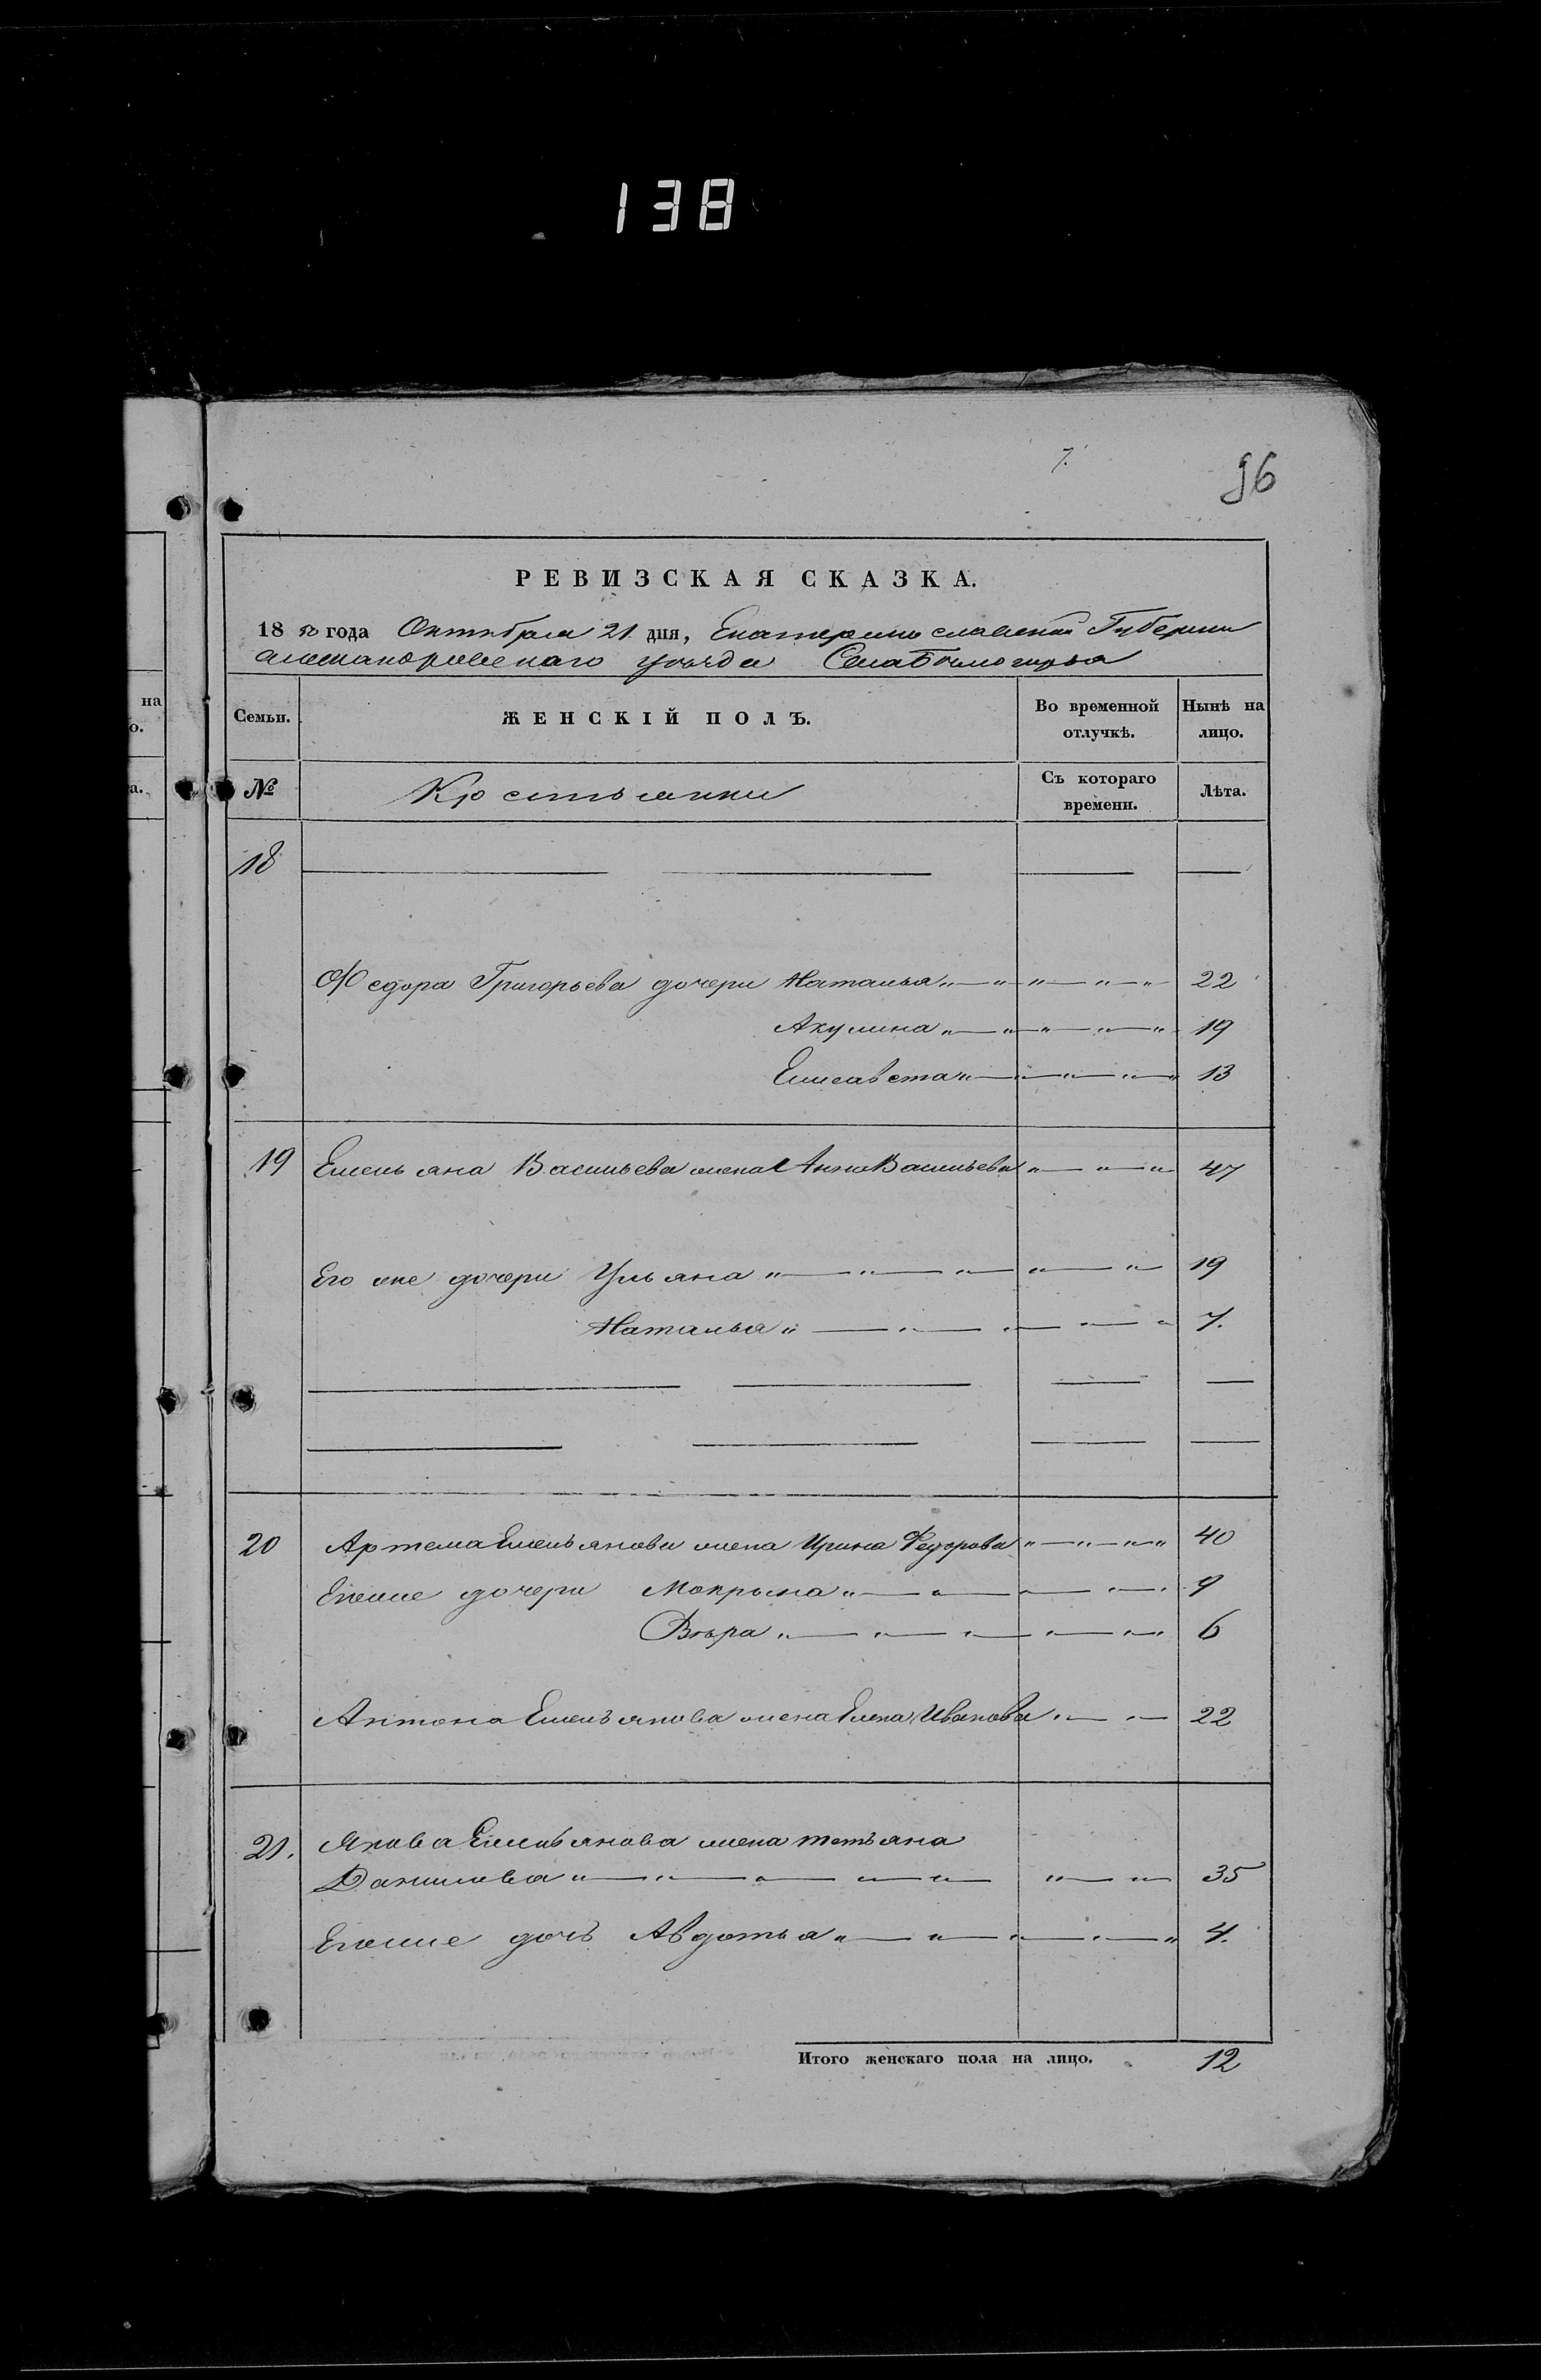 138
7.
96
РЕВИЗСКАЯ СКАЗКА.
18 58 года Октября 21 дня, Екатеринославской Губернии
Александровскаго уѣзда Села Бѣлогорья
на
о.
Семьи. ЖЕНСКІЙ ПОЛЪ. Во временной отлучкѣ. Нынѣ на лицо.
а.
№ Крестьянки Съ котораго времени. Лѣта.
18
Федора Григорьева дочери Наталья 22
Акулина 19
Елисавета 13
19 Емельяна Васильева жена Анна Васильева 47
Его же дочери Ульяна 19
Наталья 7.
20 Артема Емельянова жена Ирина Федорова 40
Егоже дочери Мокрына 9
Вѣра 6
Антона Емельянова жена Елена Иванова 22
21. Якова Емельянова жена Тетьяна
Данилова 35
Егоже дочь Авдотья 4.
Итого женскаго пола на лицо. 12